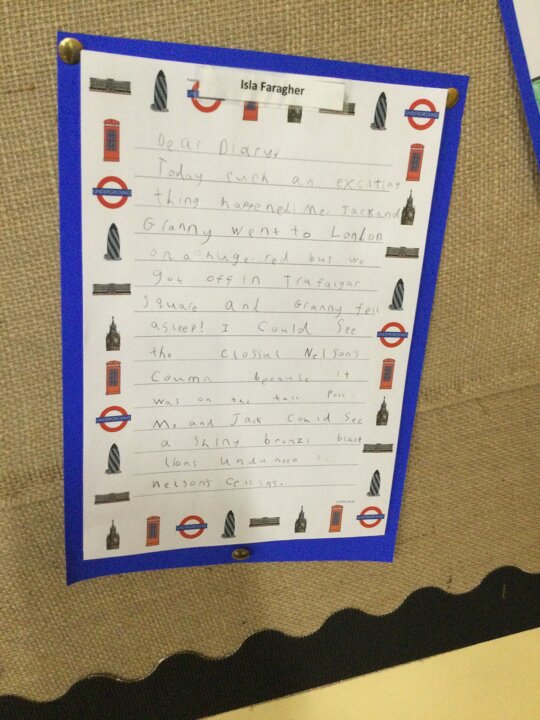 Isla Faragher
Dear Diary,
Today such an exciting
thing happened! Me, Jack and
Granny went to London
on a huge red bus. we
got off in Trafalgar
Square and Granny fell
asleep! I Could See
the Clossul Nelson's
Coumn because it
was on the tall
Me and Jack Could See
a Shiny bronze black
lions
Nelson's
UNDERGROUND
UNDERGROUND
UNDERGROUND
UNDERGROUND
UNDERGROUND
UNDERGROUND